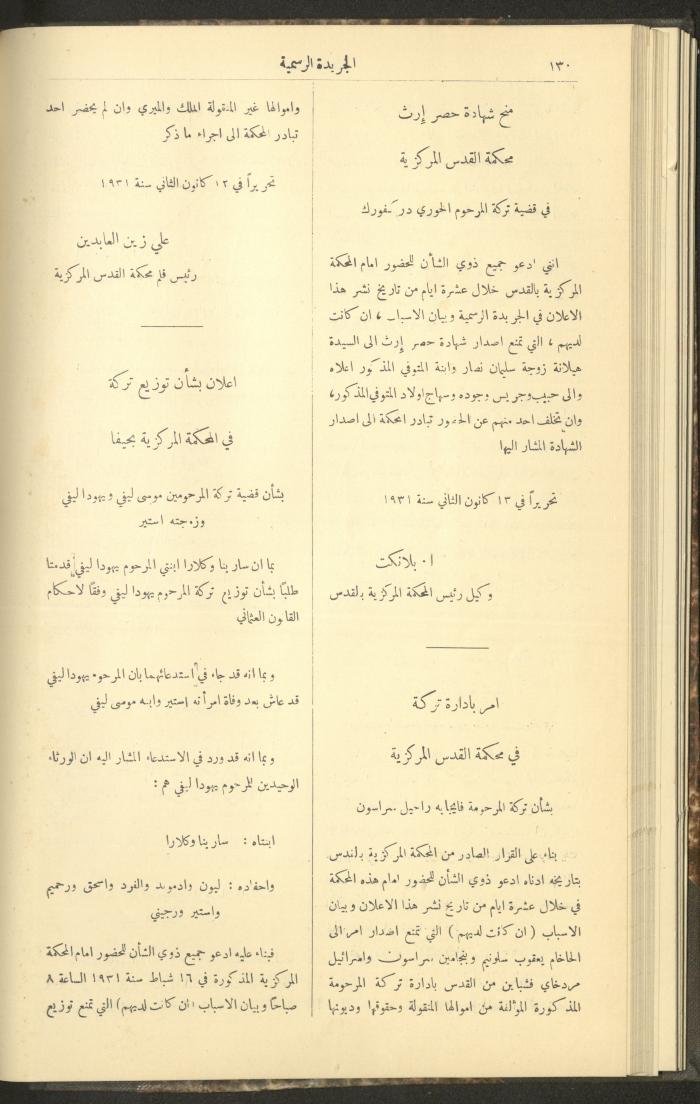 ١٣٠
الجريدة الرسمية
منح شهادة حصر إرث
محكمة القدس المركزية
في قضية تركة المرحوم الخوري
انني ادعو جميع ذوي الشأن للحضور امام المحكمة
المركزية بالقدس خلال عشرة ايام من تاريخ نشر هذا
الاعلان في الجريدة الرسمية وبيان الاسباب ، ان كانت
لديهم ، التي تمنع اصدار شهادة حصر إرث الى السيدة
هيلانة زوجة سليمان نصار وابنة المتوفي المذكور اعلاه
والى حبيب وجريس وجوده وسهاج اولاد المتوفي المذكور،
وان تخلف احد منهم عن الحضور تبادر المحكمة الى اصدار
الشهادة المشار اليها
تحريراً في ١٣ كانون الثاني سنة ١٩٣١
ا٠ بلانكت
وكيل رئيس المحكمة المركزية بالقدس
امر بادارة تركة
في محكمة القدس المركزية
بشأن تركة المرحومة راحيل
بناء على القرار الصادر من المحكمة المركزية بالقدس
بتاريخه ادناه ادعو ذوي الشأن للحضور امام هذه المحكمة
في خلال عشرة ايام من تاريخ نشر هذا الاعلان وبيان
الاسباب ( ان كانت لديهم ) التي تمنع اصدار امر الى
الحاخام يعقوب سلونيم وبنجامين واسرائيل
مردخاي فشباين من القدس بادارة تركة المرحومة
المذكورة المؤلفة من اموالها المنقولة وحقوقها وديونها
واموالها غير المنقولة الملك والميري وان لم يحضر احد
تبادر المحكمة الى اجراء ما ذكر
تحريراً في ١٢ كانون الثاني سنة ١٩٣١
علي زين العابدين
رئيس قلم محكمة القدس المركزية
اعلان بشأن توزيع تركة
في المحكمة المركزية بحيفا
بشأن قضية تركة المرحومين موسى ليفي ويهودا ليفي
وزوجته استير
بما ان سارينا وكلارا ابنتي المرحوم يهودا ليفي قدمتا
طلبًا بشأن توزيع تركة المرحوم يهودا ليفي وفقًا لاحكام
القانون العثماني
وبما انه قد جاء في استدعائهما بان المرحوم يهودا ليفي
قد عاش بعد وفاة امرأته استير وابنه موسى ليفي
وبما انه قد ورد في الاستدعاء المشار اليه ان الورثاء
الوحيدين للمرحوم يهودا ليفي هم :
ابنتاه : سارينا وكلارا
واحفاده : ليون وادموند والفرد واسحق ورحميم
واستير ورجيني
فبناء عليه ادعو جميع ذوي الشأن للحضور امام المحكمة
المركزية المذكورة في ١٦ شباط سنة ١٩٣١ الساعة ٨
صباحًا وبيان الاسباب (ان كانت لديهم) التي تمنع توزيع